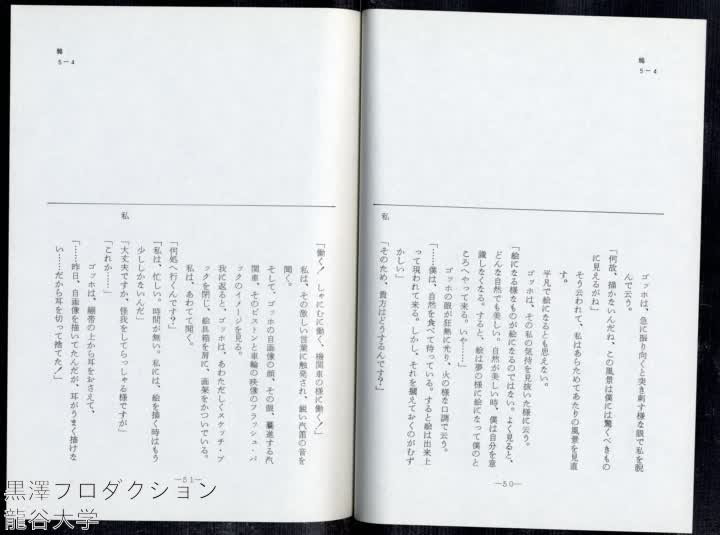 鴉
5—4
ゴッホは、急に振り向くと突き刺す様な眼で私を睨
んで云う。
「何故、描かないんだね、この風景は僕には驚くべきもの
に見えるがね」
そう云われて、私はあらためてあたりの風景を見直
す。
平凡で絵になるとも思えない。
ゴッホは、その私の気持を見抜いた様に云う。
「絵になる様なものが絵になるのではない。よく見ると、
どんな自然でも美しい。自然が美しい時、僕は自分を意
識しなくなる。すると、絵は夢の様に絵になって僕のと
ころへやって来る。いや……」
ゴッホの眼が狂熱に光り、火の様な口調で云う。
「……僕は、自然を食べて待っている。すると絵は出来上
って現われて来る。しかし、それを摑えておくのがむず
かしい」
私
「そのため、貴方はどうするんです？」
—50—
5—4
「働く！　しゃにむに働く、機関車の様に働く！」
私は、その激しい言葉に触発され、鋭い汽笛の音を
聞く。
そして、ゴッホの自画像の顔、その眼、驀進する汽
関車、そのピストンと車輪の映像のフラッシュ・バ
ックのイメージを見る。
我に返ると、ゴッホは、あわただしくスケッチ・ブ
ックを閉じ、絵具箱を肩に、画架をかついでいる。
私は、あわてて聞く。
「何処へ行くんです？」
「私は、忙しい。時間が無い。私には、絵を描く時はもう
少ししかないんだ」
私
「大丈夫ですか、怪我をしてらっしゃる様ですが」
「これか……」
ゴッホは、繃帯の上から耳をおさえて、
「……昨日、自画像を描いてたんだが、耳がうまく描けな
い……だから耳を切って捨てた！」
—51—
黒澤プロダクション
龍谷大学